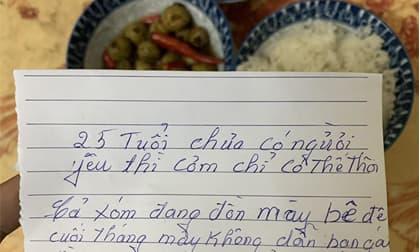 25 Tuổi chưa có người
yêu thì cơm chỉ có thế thôi
Cả xóm đang đồn mày bê đê
cuối tháng mày không dẫn bạn gái